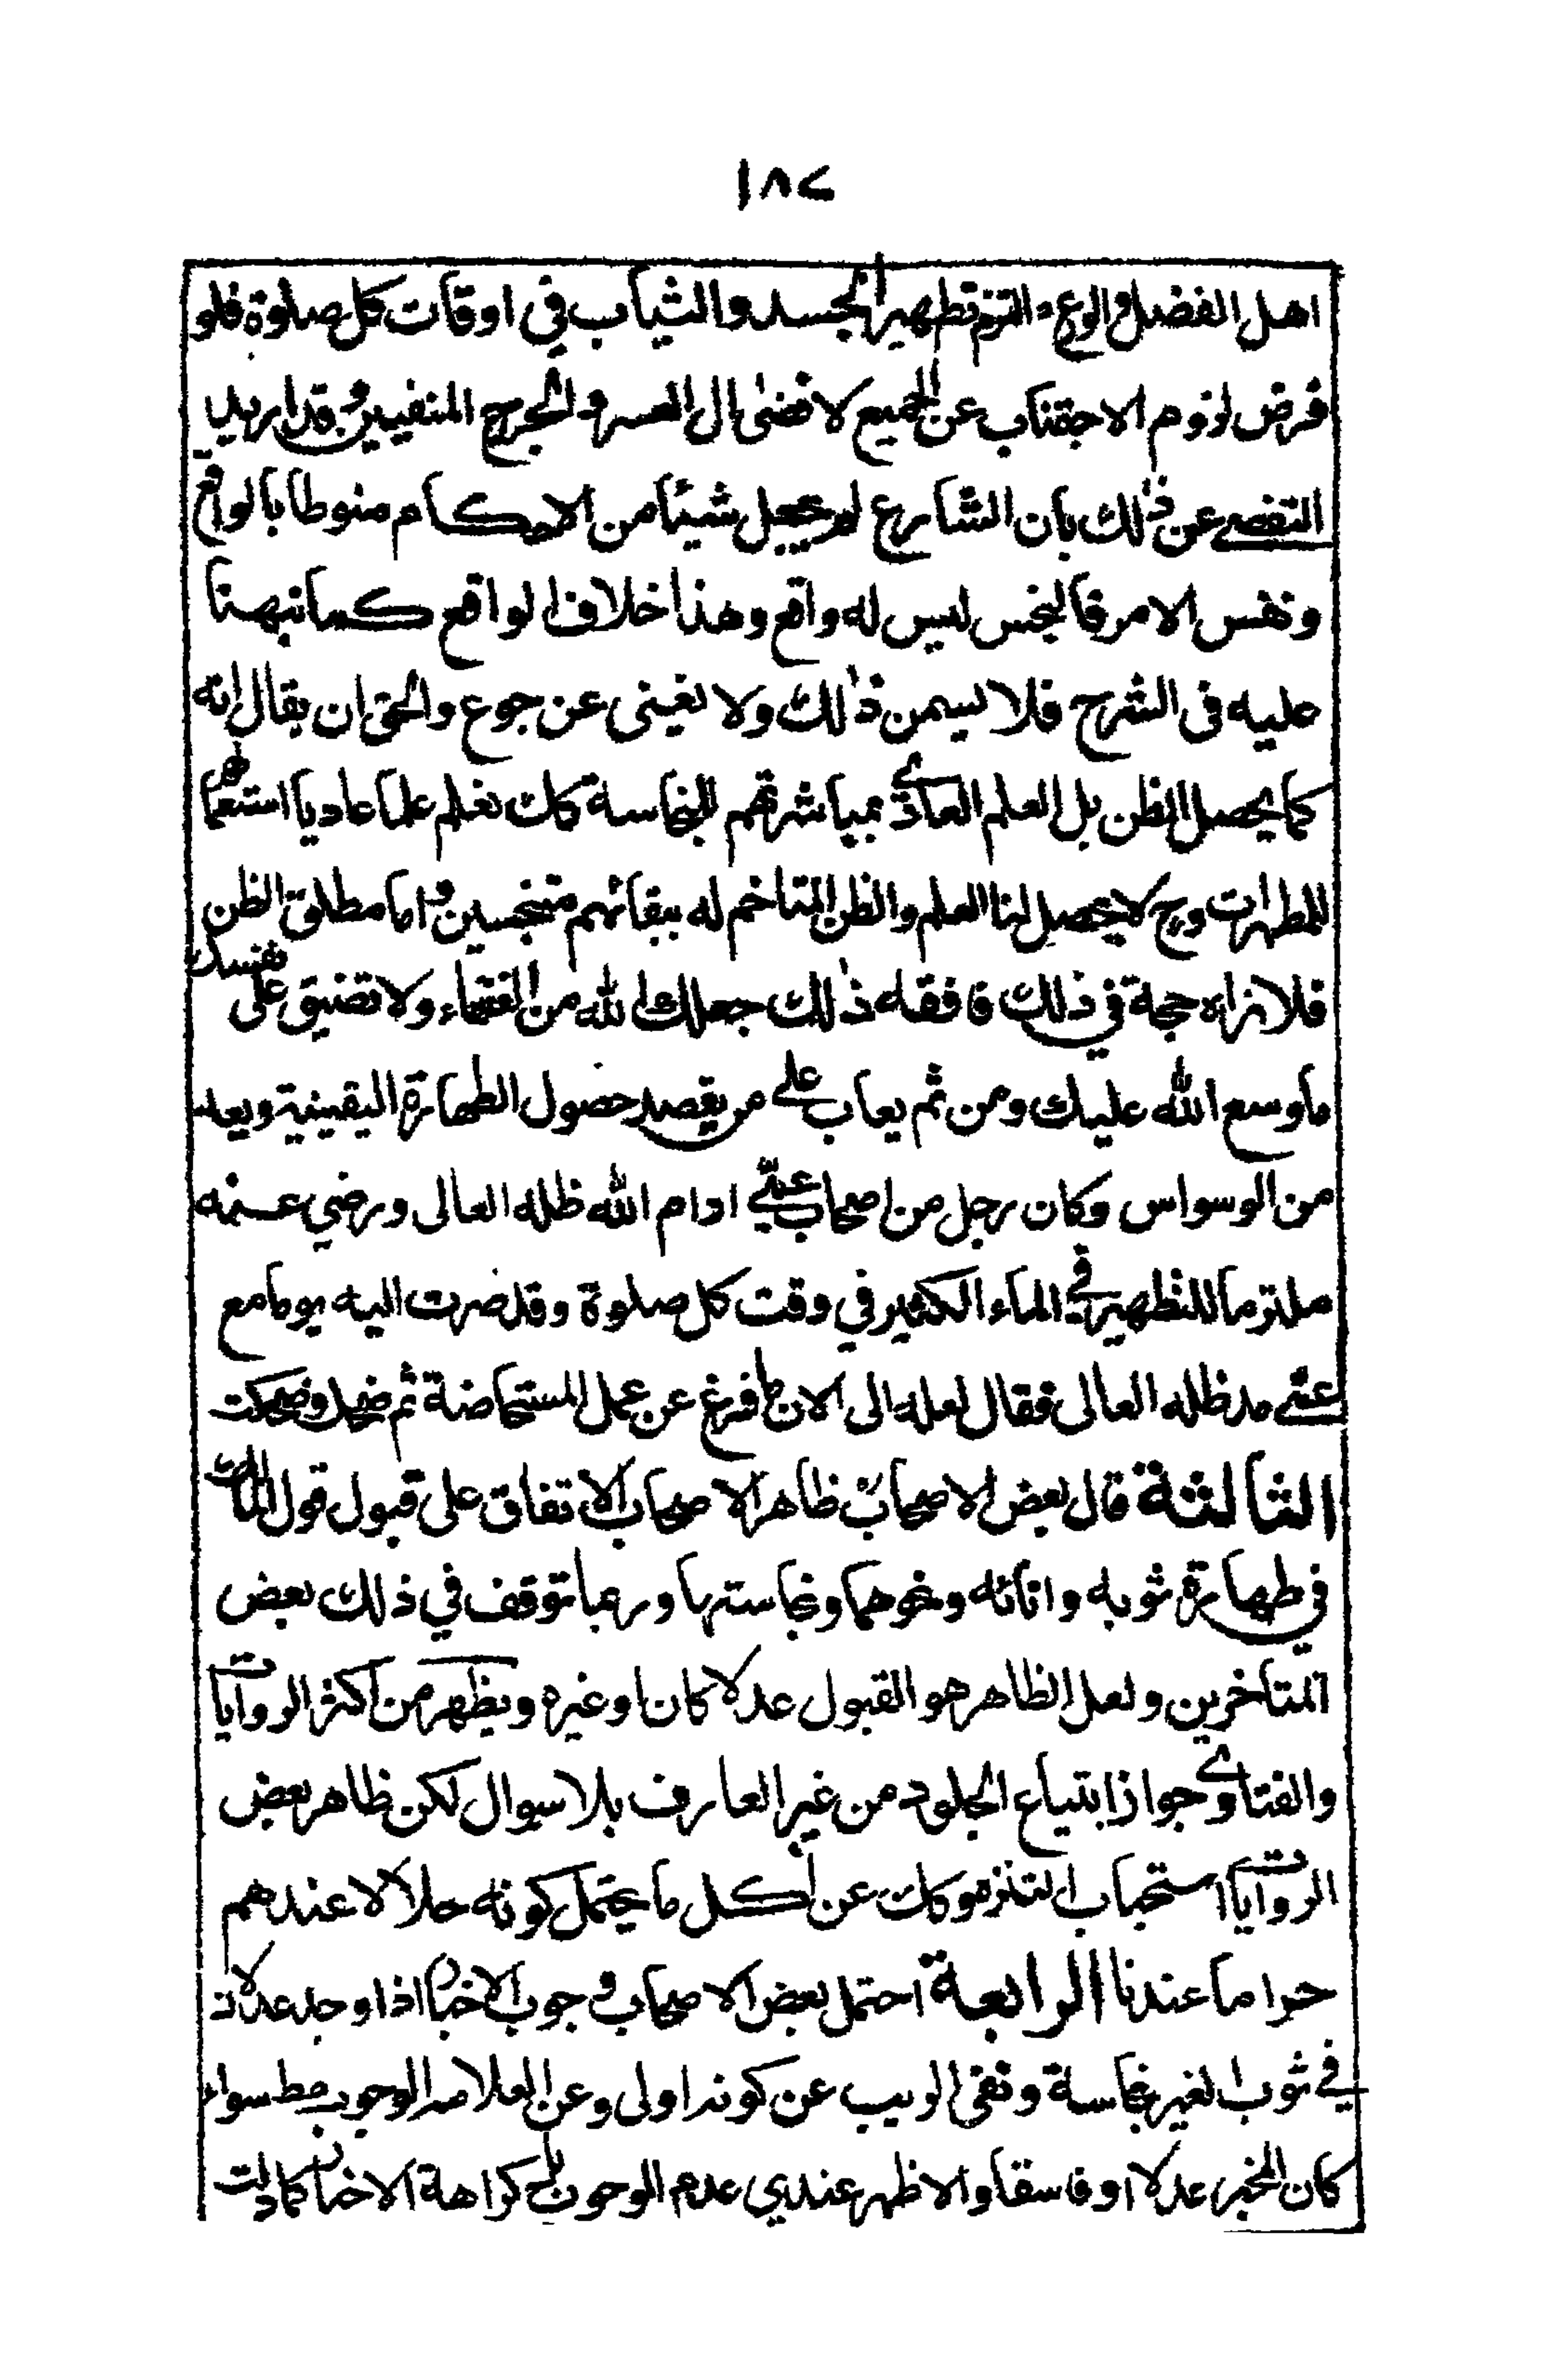 ١٨٢
اهل الفضل والورع التزم تطهير الجسد والثياب في اوقات كل صلوة فلو
فرض لزوم الاجتناب عن الجميع لافضى الى العسر والحرج المنفيين وقد اريد
التفصي عن ذلك بان الشارع لم يجعل شيئا من الاحكام منوطا بالواقع
ونفس الامر فالنجس ليس له واقع وهذا خلاف الواقع كما نبهنا
عليه في الشرح فلا يسمن ذلك ولا يغني عن جوع والحق ان يقال انه
كما يحصل الظن بل العلم العادي بمباشرتهم للنجاسة كك نعلم علما عاديا استعمالهم
للمطهرات وح لا يحصل لنا العلم والظن المتاخم له ببقائهم متنجسين واما مطلق الظن
فلا نراه حجة في ذلك فافقه ذلك جعلك الله من الفقهاء ولا تضيق على نفسك
ما وسع الله عليك ومن ثم يعاب على من يقصد حصول الطهارة اليقينية ويعد
من الوسواس وكان رجل من اصحاب عمي ادام الله ظله العالى ورضي عنه
ملتزما للتطهير في الماء الكثير في وقت كل صلوة وقد صرت اليه يوما مع
عمي مد ظله العالى فقال لعله الى الان ما فرغ عن عمل المستحاضة ثم ضحك وضحكت
الثالثة قال بعض الاصحاب ظاهر الاصحاب الاتفاق على قبول قول المالك
في طهارة ثوبه وانائه ونحوهما ونجاستها وربما توقف في ذلك بعض
المتاخرين ولعل الظاهر هو القبول عدلا كان او غيره ويظهر من اكثر الروايات
والفتاوى جواز ابتياع الجلود من غير العارف بلا سوال لكن ظاهر بعض
الروايات استحباب التنزه وكك عن اكل ما يحتمل كونه حلالا عندهم
حراما عندنا الرابعة احتمل بعض الاصحاب وجوب الاخبار اذا وجد عدلان
في ثوب الغير نجاسة ونفى الريب عن كونه اولى وعن العلامه الوجوب مط سواء
كان المخبر عدلا او فاسقا والاظهر عندي عدم الوجوب بل كراهة الاخبار كما دلت